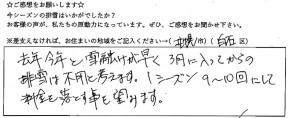 ☆ご感想をお願いします☆
今シーズンの排雪はいかがでしたか？
お客様の声が、私たちの原動力になっています。ぜひ、ご感想をお聞かせ下さい。
※差支えなければ、お住まいの地域をご記入ください→(札幌/市)(白石区)
去年今年と雪融けが早く3月に入ってからの
排雪は不用と考えます。1シーズン9〜10回にして
料金を落とす事を望みます。